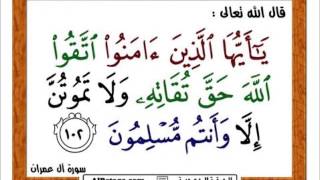 قال الله تعالى :
يَٰٓأَيُّهَا ٱلَّذِينَ ءَامَنُوا۟ ٱتَّقُوا۟
ٱللَّهَ حَقَّ تُقَاتِهِۦ وَلَا تَمُوتُنَّ
إِلَّا وَأَنتُم مُّسْلِمُونَ ١٠٢
سورة آل عمران